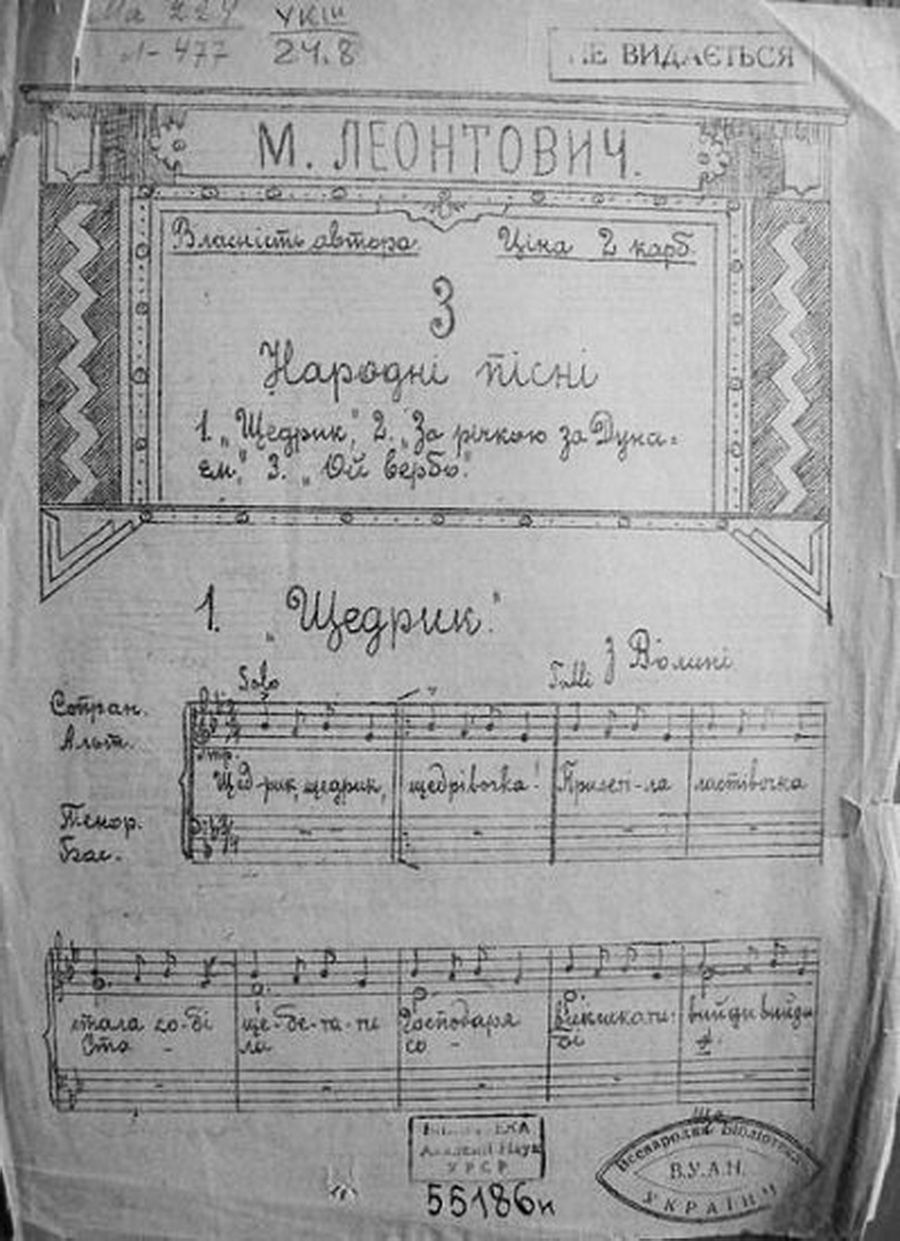 Ма 224 УКІШ
477 24.8
НЕ ВИДАЄТЬСЯ
М. ЛЕОНТОВИЧ.
Власність автора. Ціна 2 карб.
3
Народні пісні
1. „Щедрик," 2. „За річкою за Дуна=
єм," 3. „Ой вербо."
1. „Щедрик."
З Волині
Solo Tutti
Сопран.
Альт.
Щед-рик, щедрик, щедрівочка! Прилеті-ла ластівочка
Тенор.
Бас.
стала со-бі ще-бе-та-ти Господаря викликати: вийди вийди
Ста - ла со - бі
БІБЛІОТЕКА
Академії Наук
УРСР
55186н
Всенародня Бібліотека
В.У.А.Н.
УКРАЇНИ